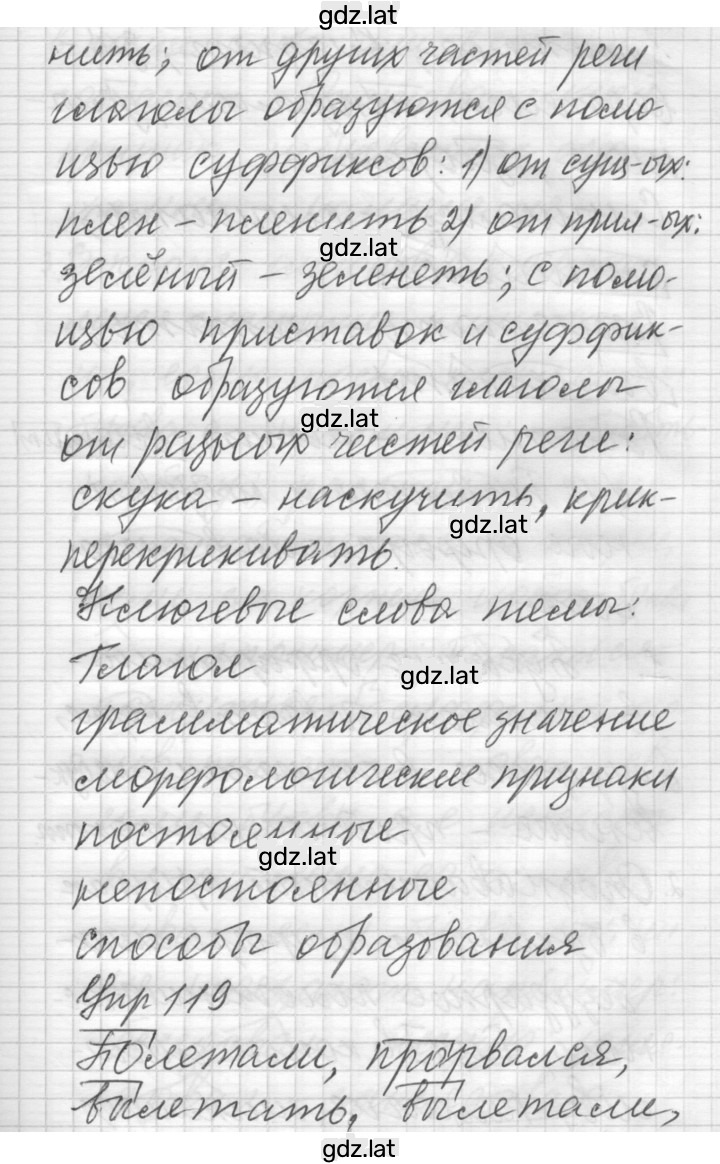 gdz.lat
нить; от других частей речи
глаголы образуются с помо
щью суффиксов: 1) от сущ-ых:
плен - пленить 2) от прил-ых:
gdz.lat
зелёный - зеленеть; с помо-
щью приставок и суффик-
сов образуются глаголы
gdz.lat
от разных частей речи:
скука - наскучить, крик-
gdz.lat
перекрикивать.
Ключевые слова темы:
Глагол
gdz.lat
грамматическое значение
морфологические признаки
постоянные
gdz.lat
непостоянные
способы образования
Упр 119
Полетали, прорвался,
вылетать, вылетали,
gdz.lat